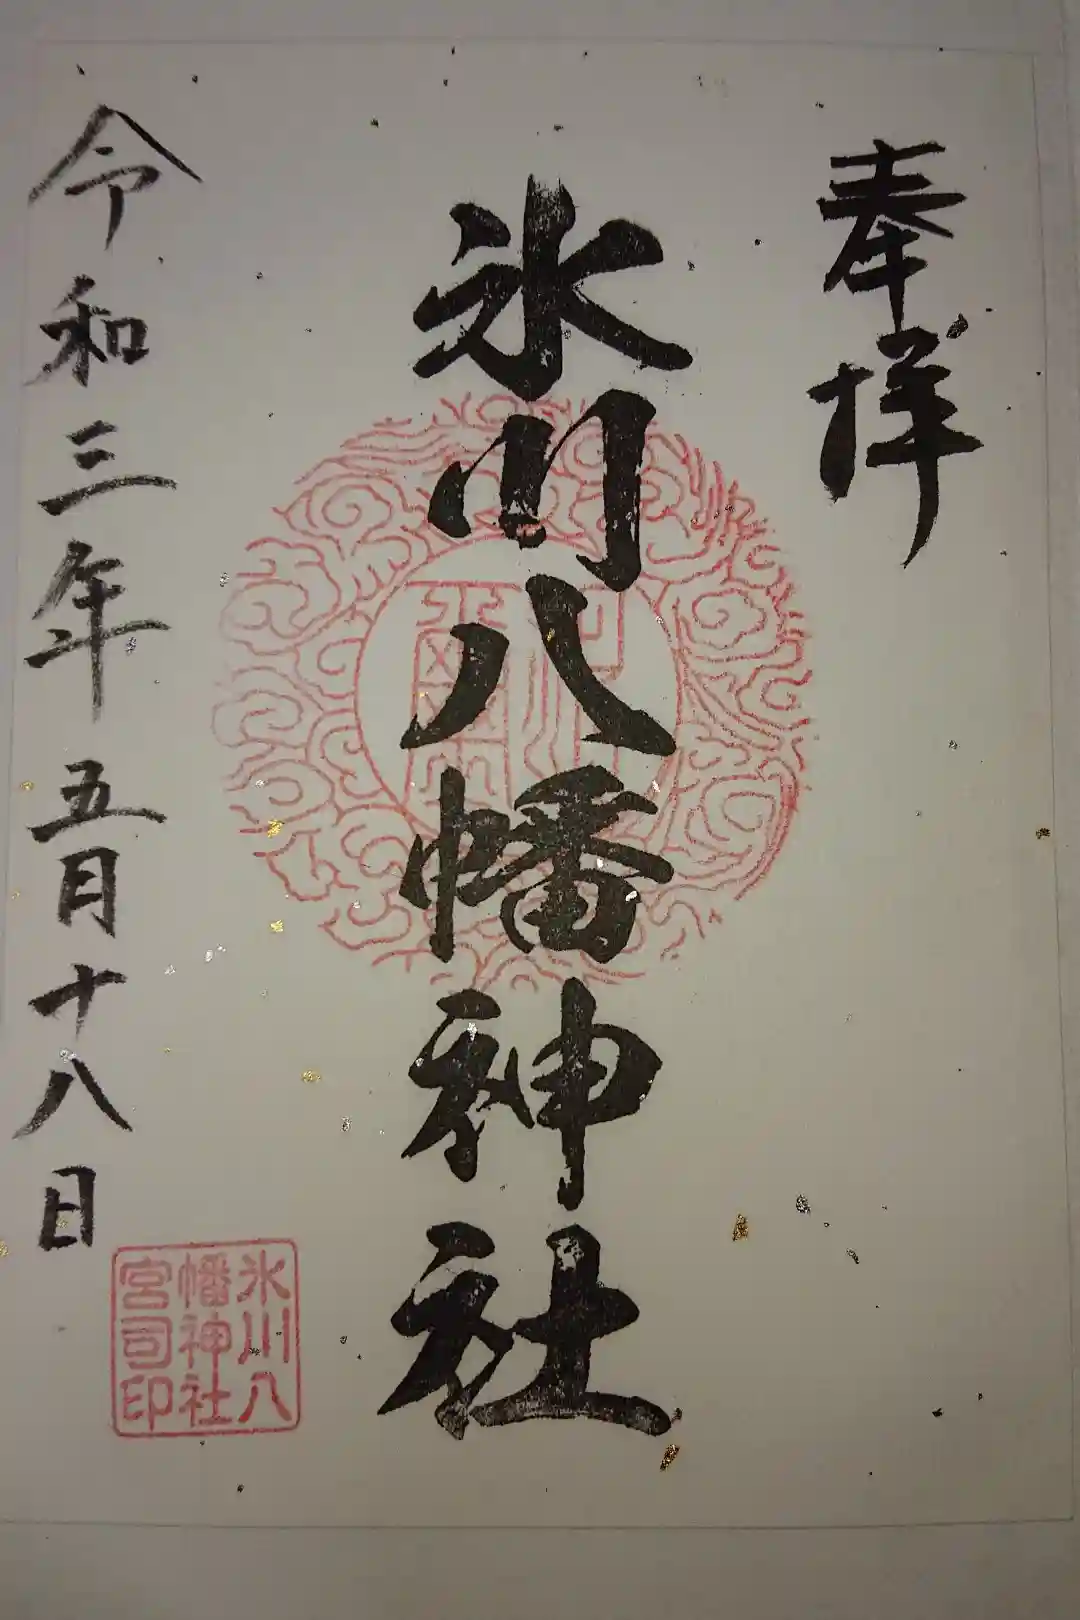 奉拝
氷川八幡神社
令和三年五月十八日
氷川八
幡神社
宮司印